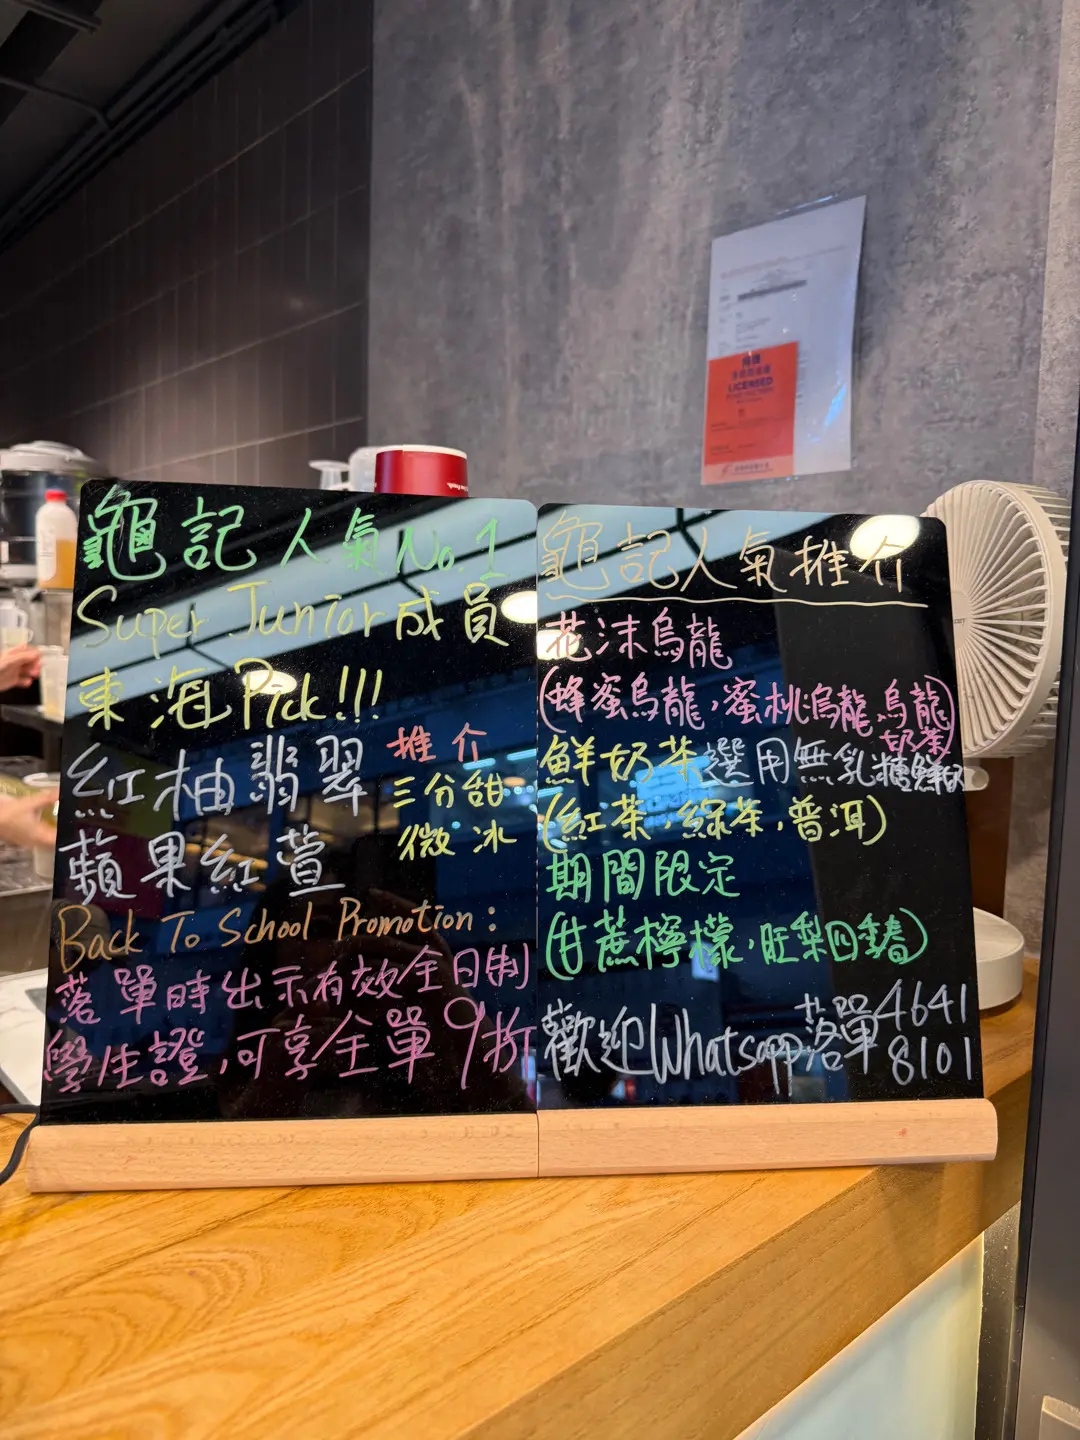 龜記人氣No.1
Super Junior成員
東海Pick!!!
紅柚翡翠
蘋果紅萱
推介
三分甜
微冰
Back To School Promotion:
落單時出示有效全日制
學生證,可享全單9折
龜記人氣推介
花沫烏龍
(蜂蜜烏龍,蜜桃烏龍,烏龍奶茶)
鮮奶茶選用無乳糖鮮奶
(紅茶,綠茶,普洱)
期間限定
(甘蔗檸檬,旺梨四季春)
歡迎Whatsapp落單4641
8101
LICENSED